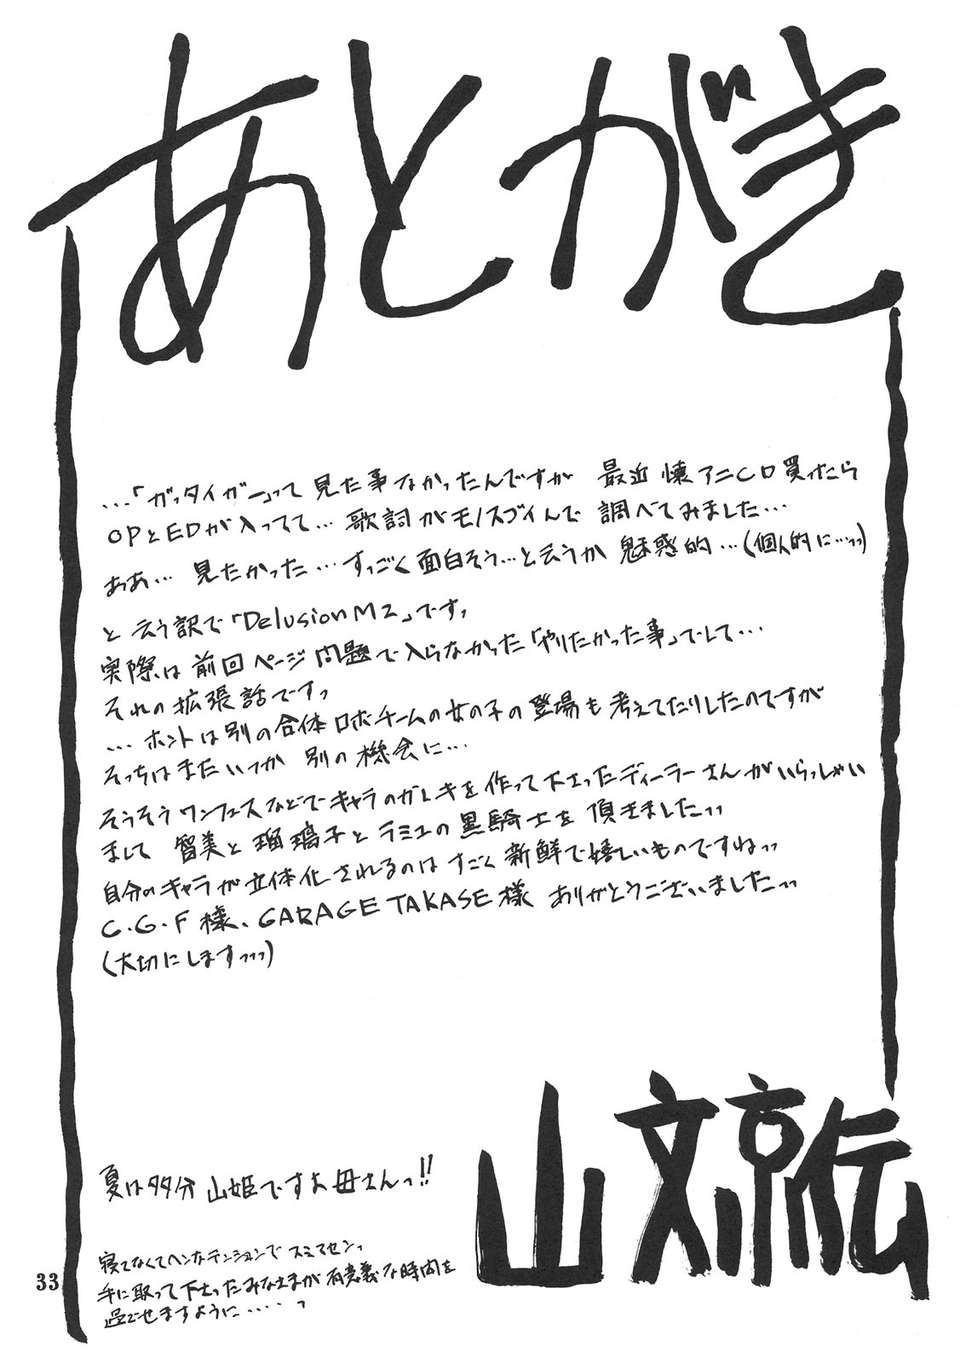 あとがき
…「ガッタイガー」って見た事なかったんですが 最近 懐アニCD買ったら
OPとEDが入ってて… 歌詞がモノスゴイんで 調べてみました…
ああ… 見たかった…すっごく面白そう…と云うか 魅惑的…(個人的に…っっ)
と云う訳で「Delusion M2」ですっ
実際は前回ページ問題で入らなかった「やりたかった事」でして…
それの拡張話ですっ
…ホントは別の合体ロボチームの女の子の登場も考えてたりしたのですが
そっちはまたいつか 別の機会に…
そうそうワンフェスなどでキャラのガレキを作って下さったディーラーさんがいらっしゃい
まして 智美と瑠璃子とラミュの黒騎士を 頂きましたっっ
自分のキャラが立体化されるのはすごく新鮮で嬉しいものですねっっ
C.G.F様、GARAGE TAKASE様 ありがとうございましたっっ
(大切にしますっっっ)
夏は多分 山姫ですよ母さんっ!!
山文京伝
寝てなくてヘンなテンションで スミマセンっ
手に取って下さったみなさまが 有意義な時間を
過ごせますように‥‥‥っ
33